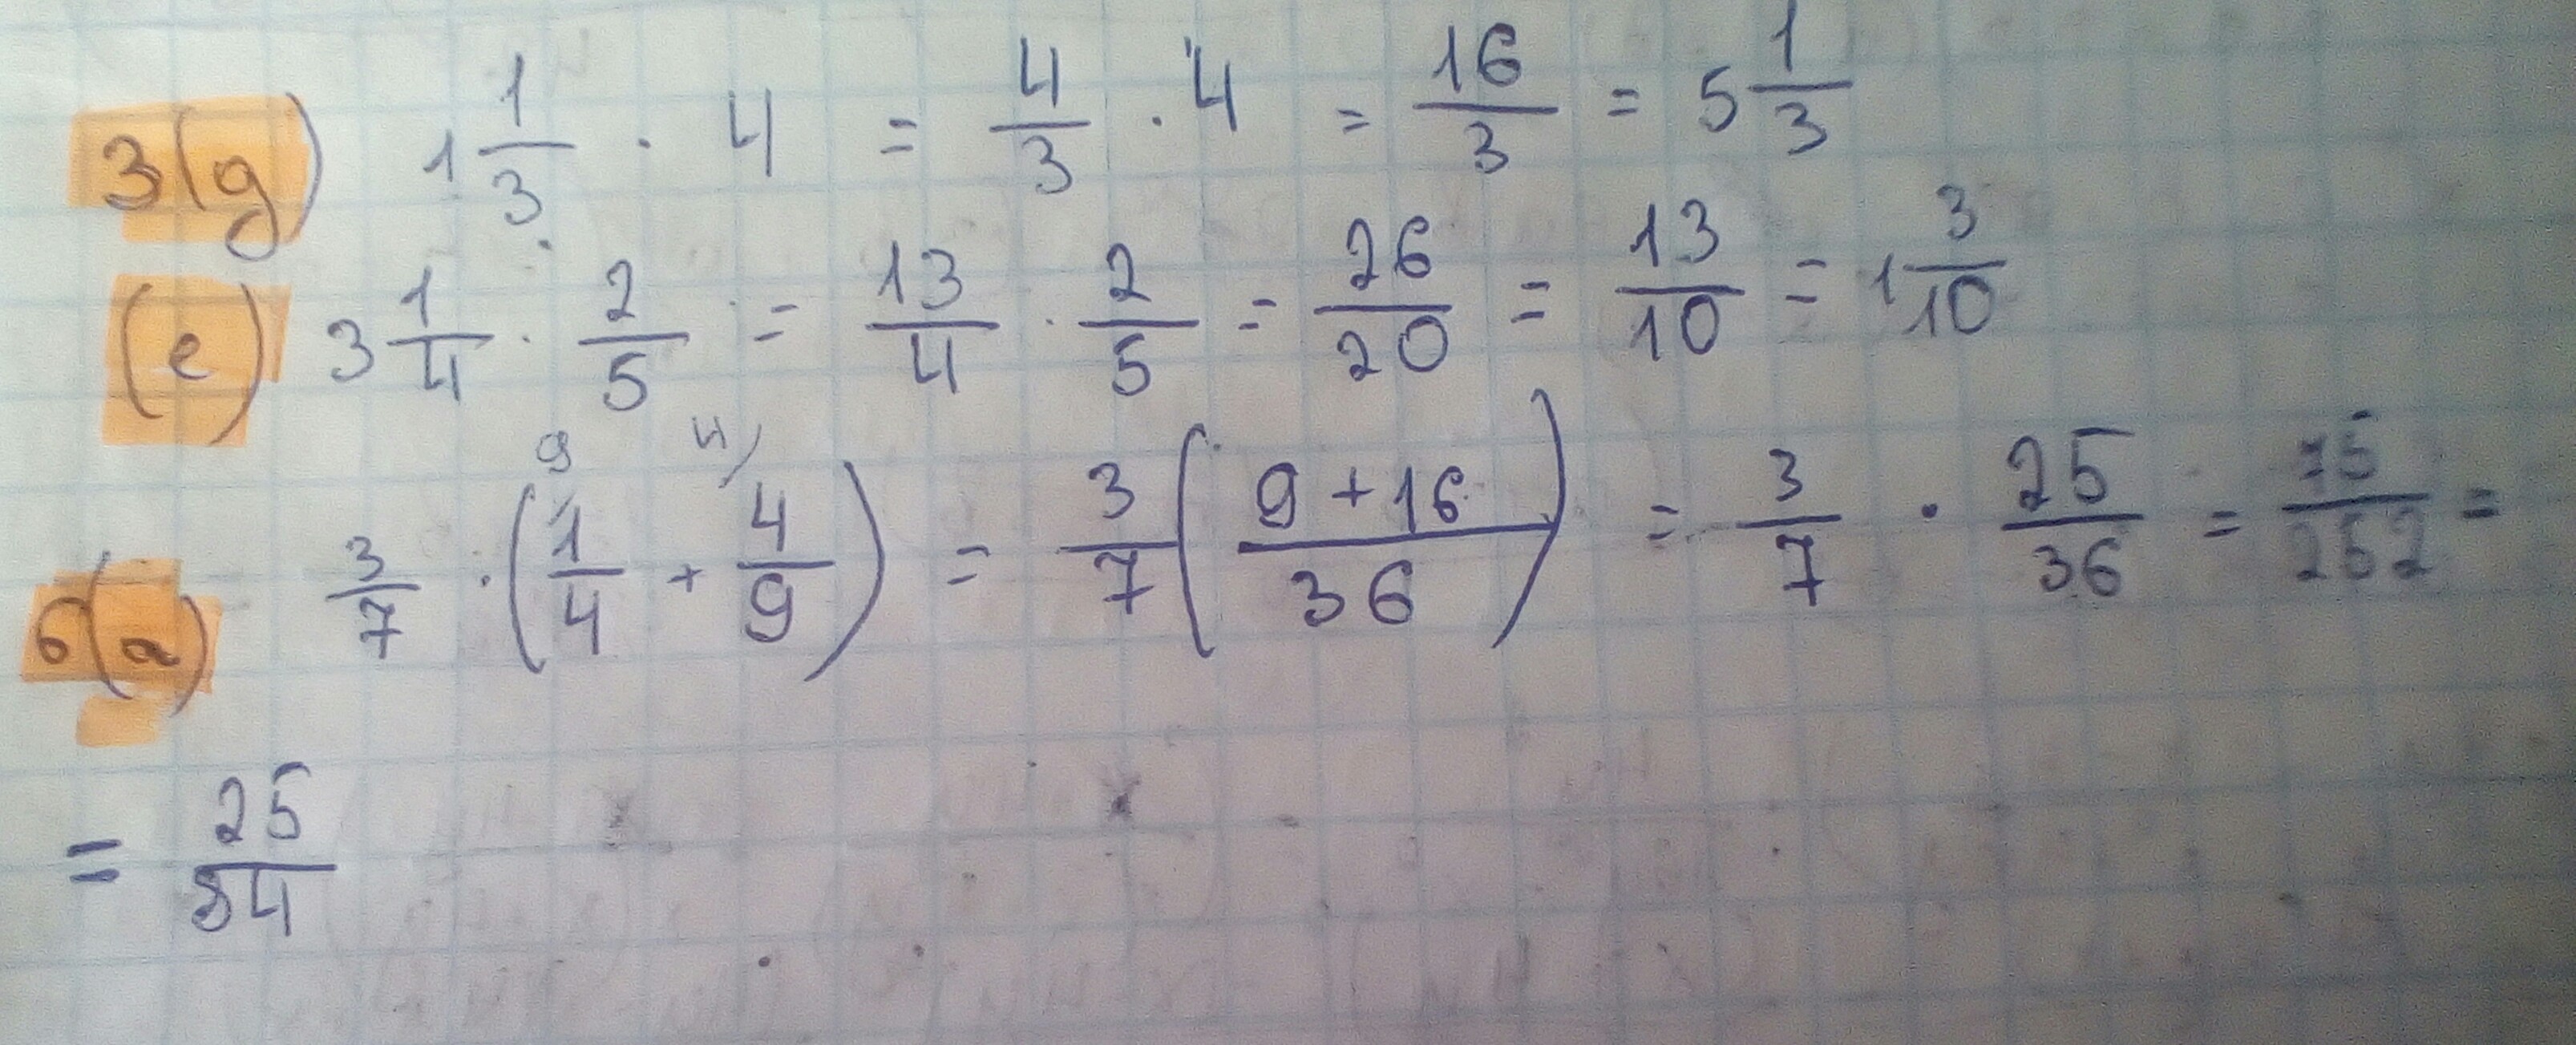 3(g) 1 1/3 · 4 = 4/3 · 4 = 16/3 = 5 1/3
(e) 3 1/4 · 2/5 = 13/4 · 2/5 = 26/20 = 13/10 = 1 3/10
9 4
6(a) 3/7 · (1/4 + 4/9) = 3/7 ((9 + 16)/36) = 3/7 · 25/36 = 75/252 =
= 25/84